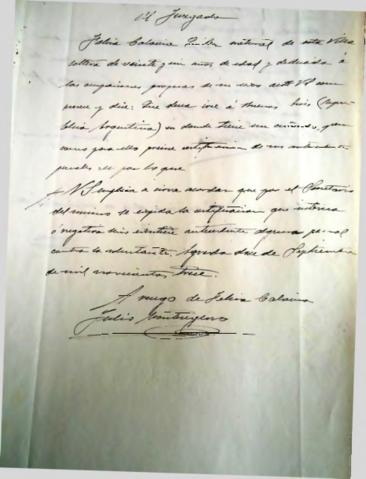 Al Juzgado
Felisa Calavia natural de esta Villa
soltera de veinte y un años de edad y dedicada á
las ocupaciones propias de su sexo ante V.S. com
parece y dice: Que desea irse á Buenos Aires (Repú
blica Argentina) en donde tiene un y
como para ello precisa certificación de sus antecedentes
penales es por lo que
A V.S. suplica se sirva acordar que por el Secretario
del mismo se expida la certificación que interesa
ó negativa si existen antecedentes penal
contra la solicitante. Agreda doce de Septiembre
de mil novecientos trece.
A ruego de Felisa Calavia
Julio